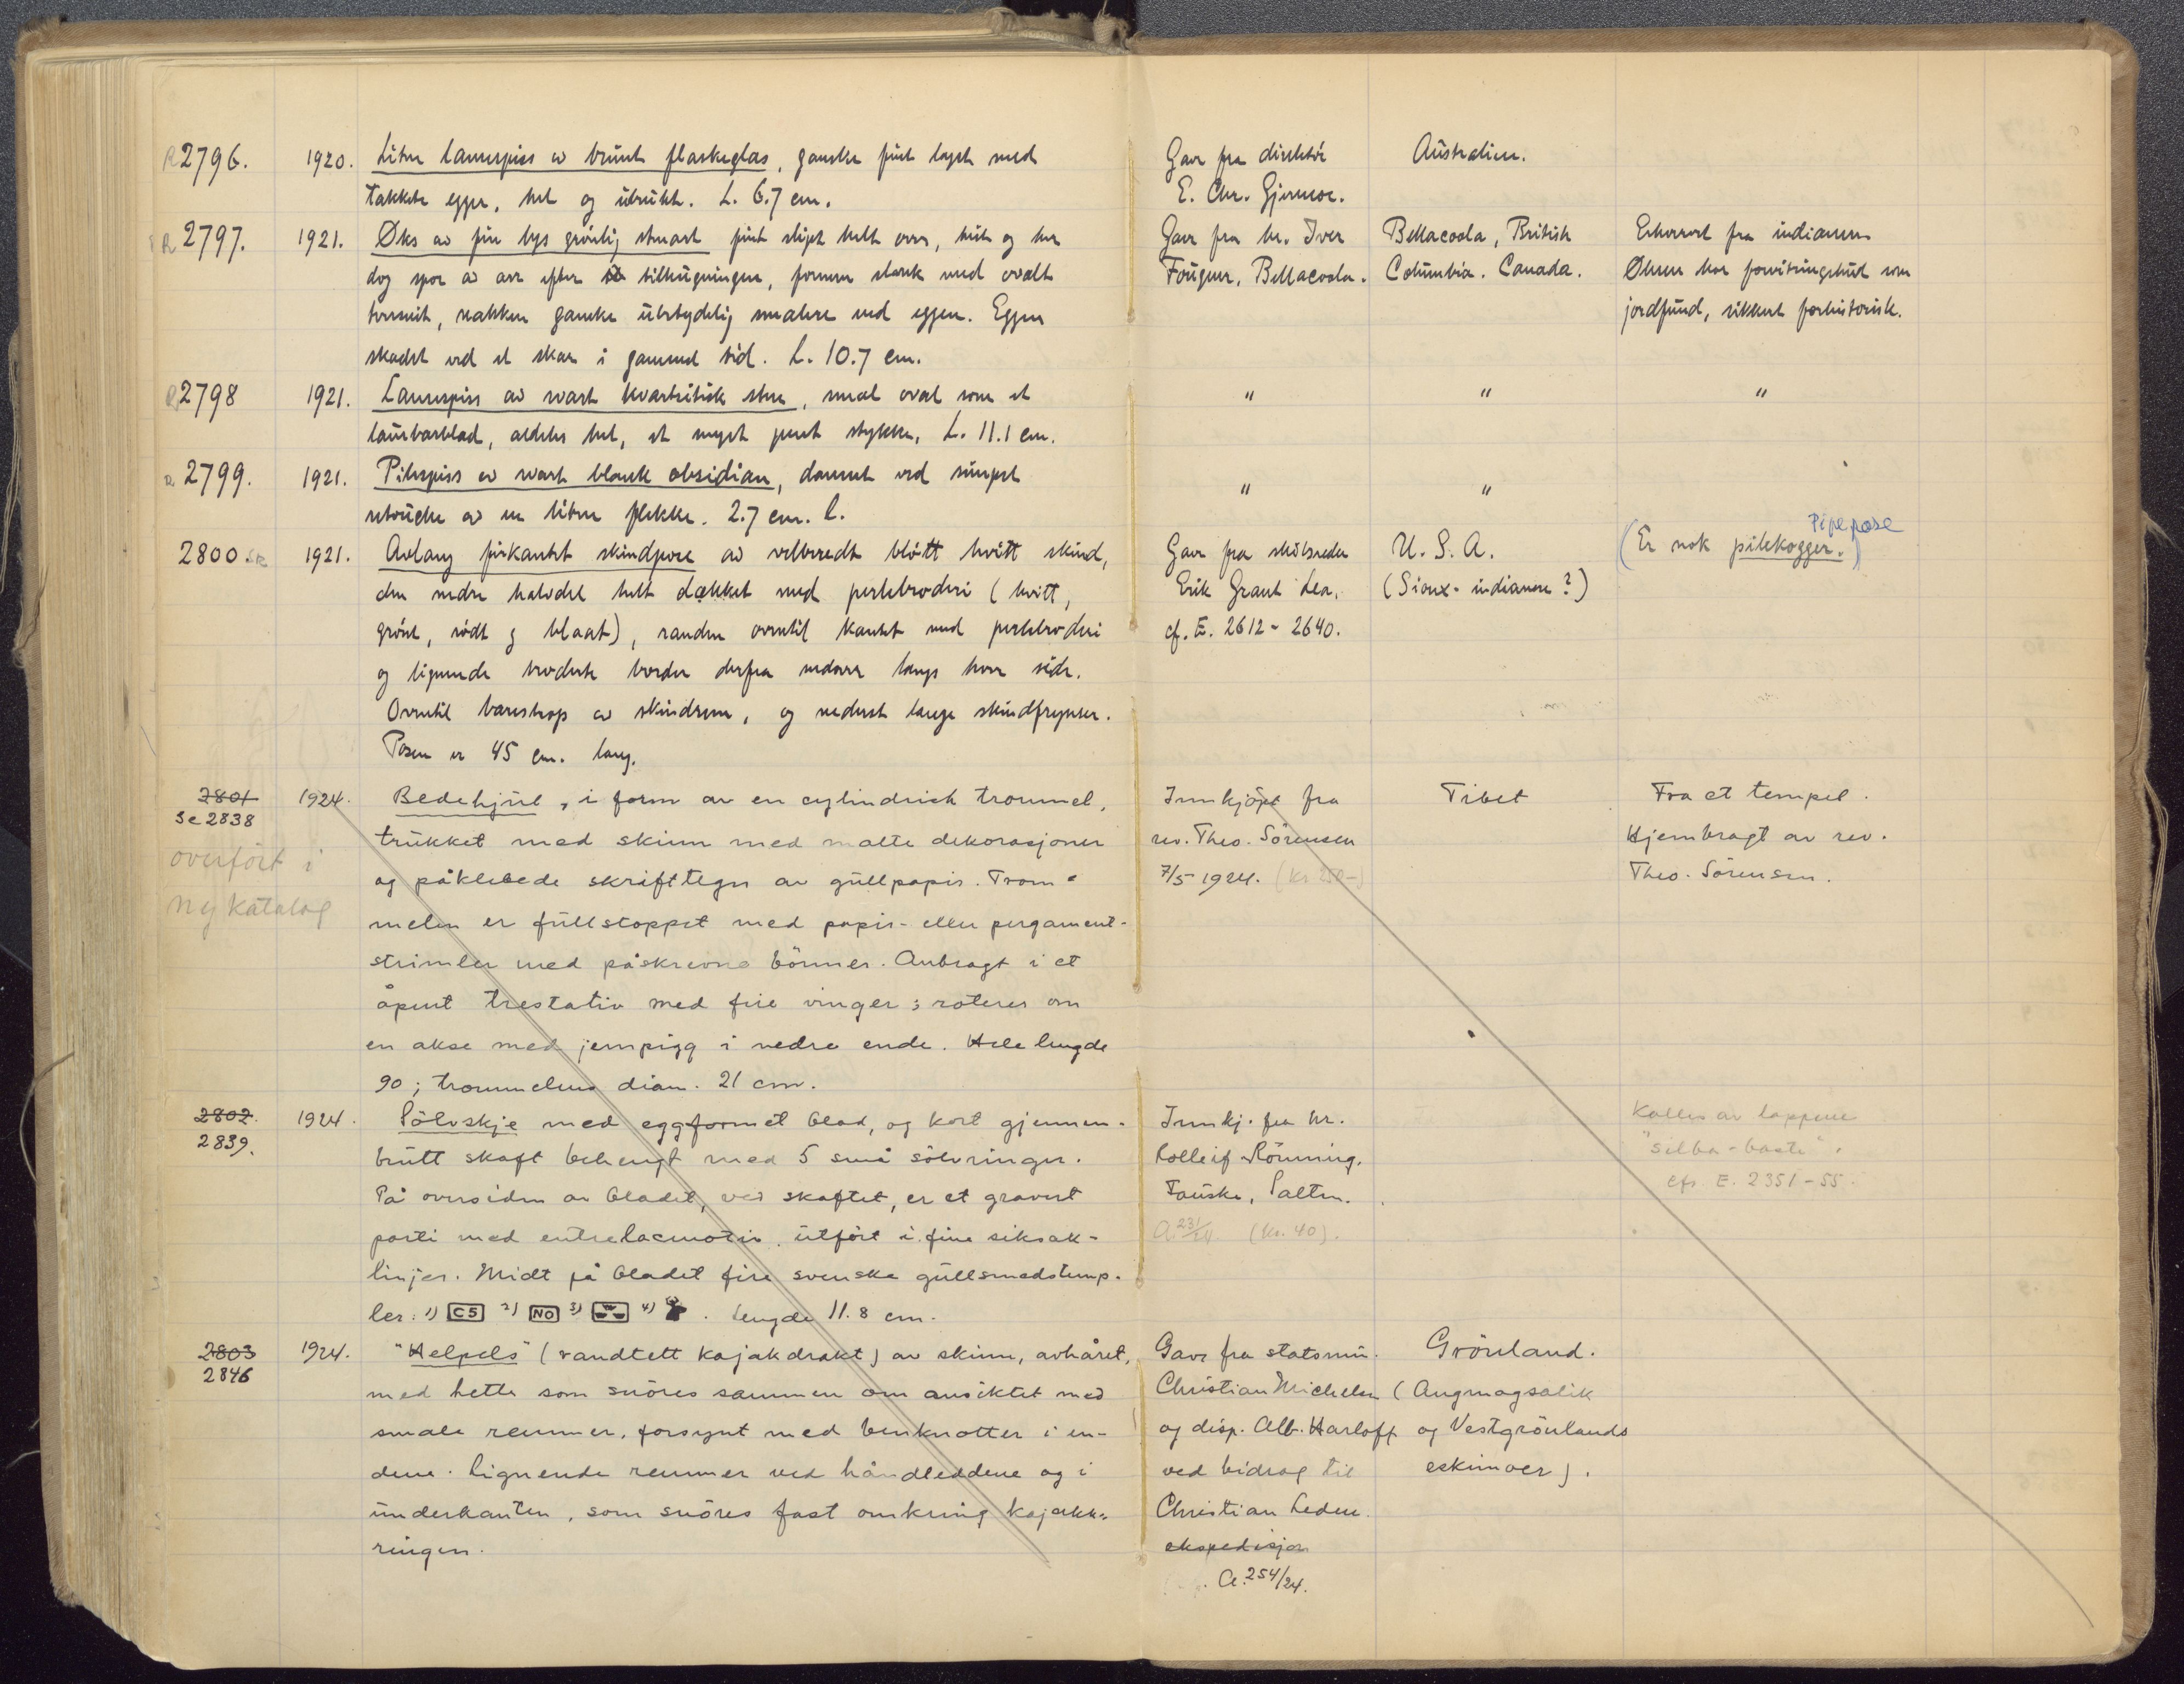 R 2796. 1920. Liten lansespiss av brunt flaskeglas, ganske fint laget med Gave fra direktör Australien.
takkete egger, hel og ubrukt. L. 6.7 cm. E. Chr. Gjermoe.
R 2797. 1921. Øks av fin lys grönlig stenart fint slipt helt over, hel og har Gave fra hr. Iver Bellacoola, British Erhvervet fra indianere
dog spor av arr efter tilhugningen, formen sterk med ovalt Fougner, Bellacoola. Columbia. Canada. Øksen har forvitringshud som
tversnit, nakken ganske ubetydelig smalere end eggen. Eggen jordfund, sikkert forhistorisk.
skadet ved et skar i gammel tid. L. 10.7 cm.
R 2798 1921. Lansespiss av svart kvartsitisk sten, smal oval som et " " "
laurbærblad, aldeles hel, et meget pent stykke, L. 11.1 cm.
R 2799. 1921. Pilespiss av svart blank obsidian, dannet ved simpel " "
retouche av en liten flekke. 2.7 cm. l.
Pipepose
2800 SR 1921. Avlang firkantet skindpose av velberedt blött hvitt skind, Gave fra skibsreder U. S. A. (Er nok pilekogger.)
den nedre halvdel helt dækket med perlebroderi (hvitt, Erik Grant Lea, (Sioux-indianere?)
grönt, rödt og blaat), randen oventil kantet med perlebroderi cf. E. 2612-2640.
og lignende broderte border derfra nedover langs hver side.
Oventil bærestrop av skindrem, og nederst lange skindfrynser.
Posen er 45 cm. lang.
2801 1924. Bedehjul, i form av en cylindrisk trommel, Innkjöpt fra Tibet Fra et tempel.
Se 2838 trukket med skinn med malte dekorasjoner rev. Theo. Sörensen Hjembragt av rev.
overfört i og påklebede skrifttegn av gullpapir. Trom- 7/5-1924. (kr 250-) Theo. Sörensen.
ny katalog melen er fullstoppet med papir- eller pergament-
strimler med påskrevne bönner. Anbragt i et
åpent trestativ med fire vinger; roteres om
en akse med jernpigg i nedre ende. Hele lengde
90; trommelens diam. 21 cm.
2802. 1924. Sölvskje med eggformet blad, og kort gjennem- Innkj. fra hr. Kalles av lappene
2839. brutt skaft behengt med 5 små sölvringer. Rolleif Rönning, "silba-baste".
På oversiden av bladet, ved skaftet, er et gravert Fauske, Salten. cfr. E. 2351-55.
parti med entrelacmotiv, utfört i fine siksak- A. 231/24. (kr. 40).
linjer. Midt på bladet fire svenske gullsmedstemp-
ler: 1) C5 2) NO 3) 4) . Lengde 11.8 cm.
2803 1924. "Helpels" (vandtett kajakdrakt) av skinn, avhåret, Gave fra statsmin. Grönland.
2846 med hette som snöres sammen om ansiktet med Christian Michelsen (Angmagsalik
smale remmer, forsynt med benknotter i en- og disp. Alb. Harloff og Vestgrönlands
dene. Lignende remmer ved håndleddene og i ved bidrag til eskimoer).
underkanten, som snöres fast omkring kajakk- Christian Leden.
ringen. ekspedisjon
A. 254/24.